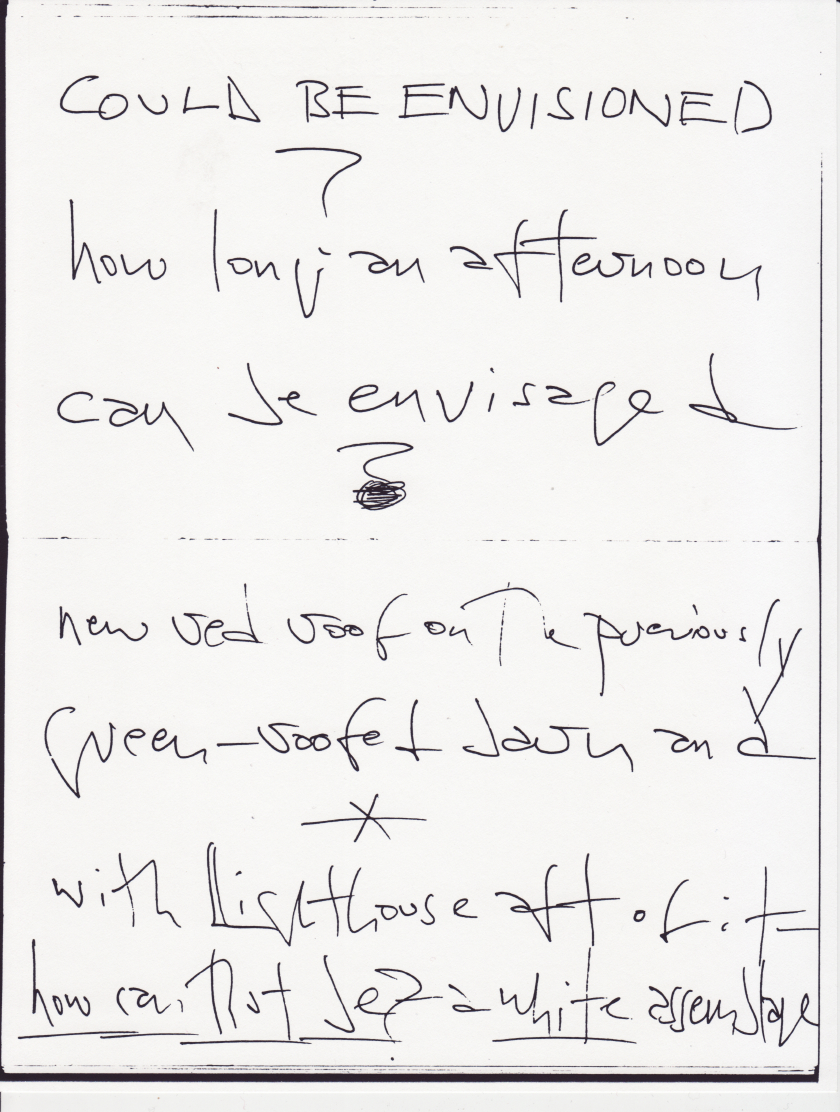 COULD BE ENVISIONED
?
how long an afternoon
can be envisaged
?
new red roof on the previously
green-roofed barn and
with Lighthouse aft of it –
how can that be? – a white assemblage